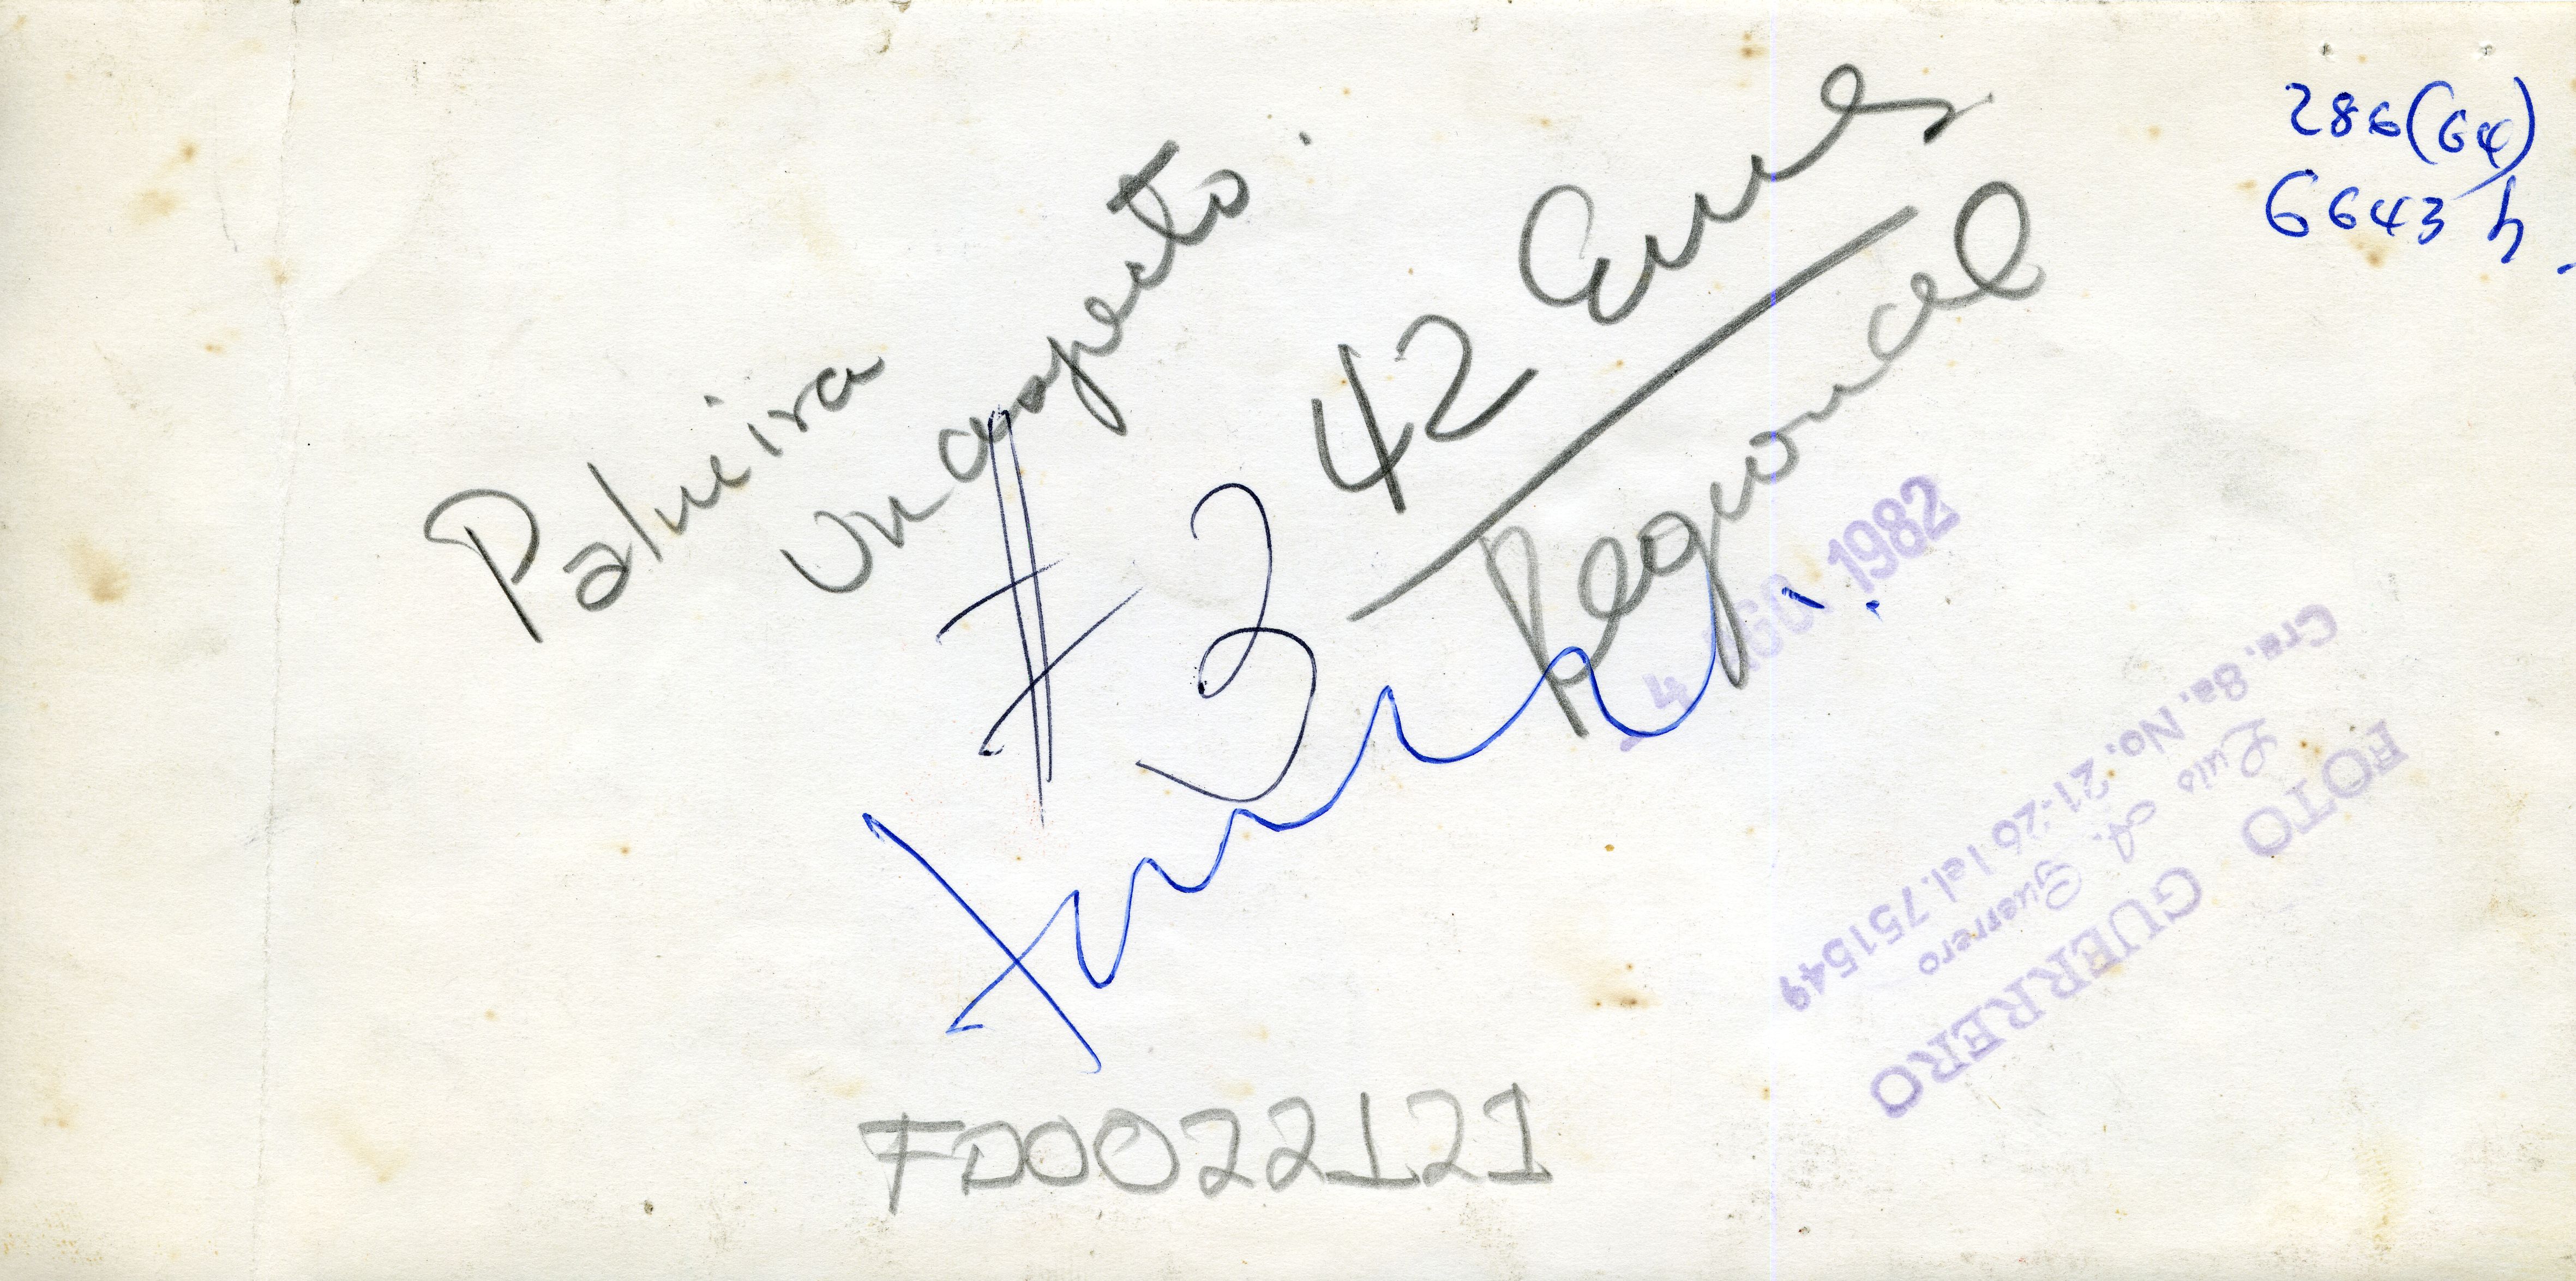 286(64)
6643 h.
Palmira
un aspecto.
42 Ems
Regional
#3
4 AGO. 1982
FOTO GUERRERO
Luis A. Guerrero
Cra. 8a. No. 21-26 Tel. 751549
FD0022121